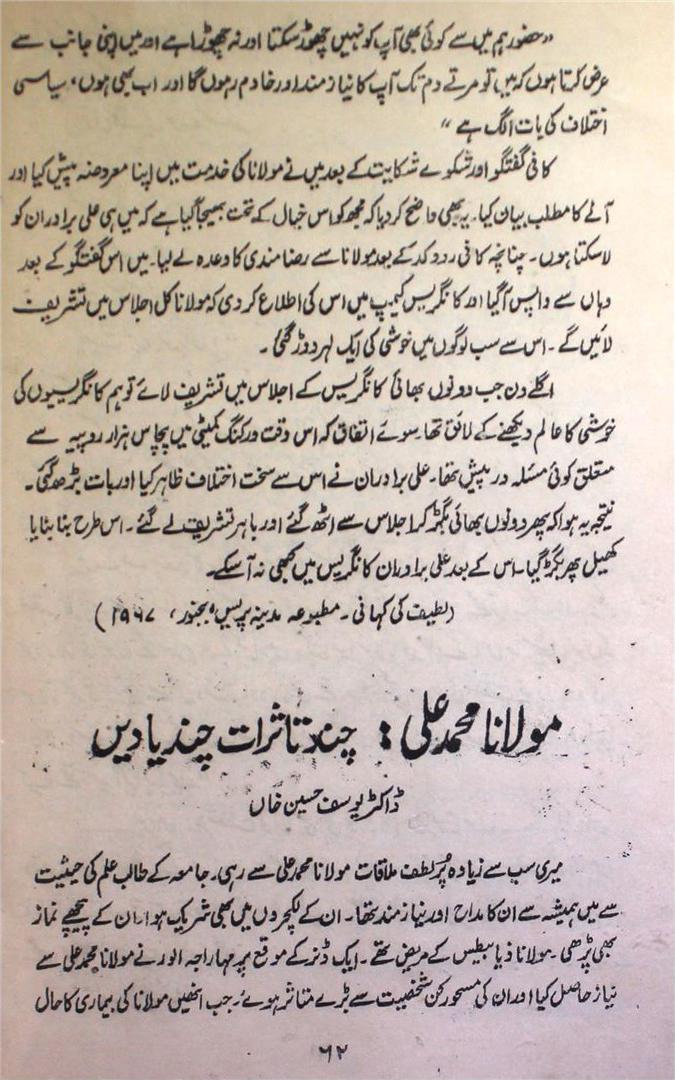 "حضور ہم میں سے کوئی بھی آپ کو نہیں چھوڑ سکتا اور نہ چھوڑا ہے اور میں اپنی جانب سے
عرض کرتا ہوں کہ میں تو مرتے دم تک آپ کا نیاز مند اور خادم رہوں گا اور اب بھی ہوں، سیاسی
اختلاف کی بات الگ ہے"
کافی گفتگو اور شکوے شکایت کے بعد میں نے مولانا کی خدمت میں اپنا معروضہ پیش کیا اور
آنے کا مطلب بیان کیا۔ یہ بھی واضح کر دیا کہ مجھ کو اس خیال کے تحت بھیجا گیا ہے کہ میں ہی علی برادران کو
لا سکتا ہوں۔ چنانچہ کافی ردوکد کے بعد مولانا سے رضامندی کا وعدہ لے لیا۔ میں اس گفتگو کے بعد
وہاں سے واپس آگیا اور کانگریس کیمپ میں اس کی اطلاع کر دی کہ مولانا کل اجلاس میں تشریف
لائیں گے۔ اس سے سب لوگوں میں خوشی کی ایک لہر دوڑ گئی۔
اگلے دن جب دونوں بھائی کانگریس کے اجلاس میں تشریف لائے تو ہم کانگریسیوں کی
خوشی کا عالم دیکھنے کے لائق تھا۔ سوئے اتفاق کہ اس وقت ورکنگ کمیٹی میں پچاس ہزار روپیہ سے
متعلق کوئی مسئلہ درپیش تھا۔ علی برادران نے اس سے سخت اختلاف ظاہر کیا اور بات بڑھ گئی۔
نتیجہ یہ ہوا کہ پھر دونوں بھائی بگڑ کر اجلاس سے اٹھ گئے اور باہر تشریف لے گئے۔ اس طرح بنا بنایا
کھیل پھر بگڑ گیا۔ اس کے بعد علی برادران کانگریس میں کبھی نہ آسکے۔
(لطیف کی کہانی۔ مطبوعہ مدینہ پریس، بجنور، ۱۹۶۷)
مولانا محمد علی: چند تاثرات چند یادیں
ڈاکٹر یوسف حسین خاں
میری سب سے زیادہ پُر لطف ملاقات مولانا محمد علی سے رہی۔ جامعہ کے طالب علم کی حیثیت
سے میں ہمیشہ سے ان کا مداح اور نیاز مند تھا۔ ان کے لکچروں میں بھی شریک ہوا۔ ان کے پیچھے نماز
بھی پڑھی۔ مولانا ذیابیطس کے مریض تھے۔ ایک ڈنر کے موقع پر مہاراجہ الور نے مولانا محمد علی سے
نیاز حاصل کیا اور ان کی مسحور کن شخصیت سے بڑے متاثر ہوئے۔ جب انھیں مولانا کی بیماری کا حال
۶۲